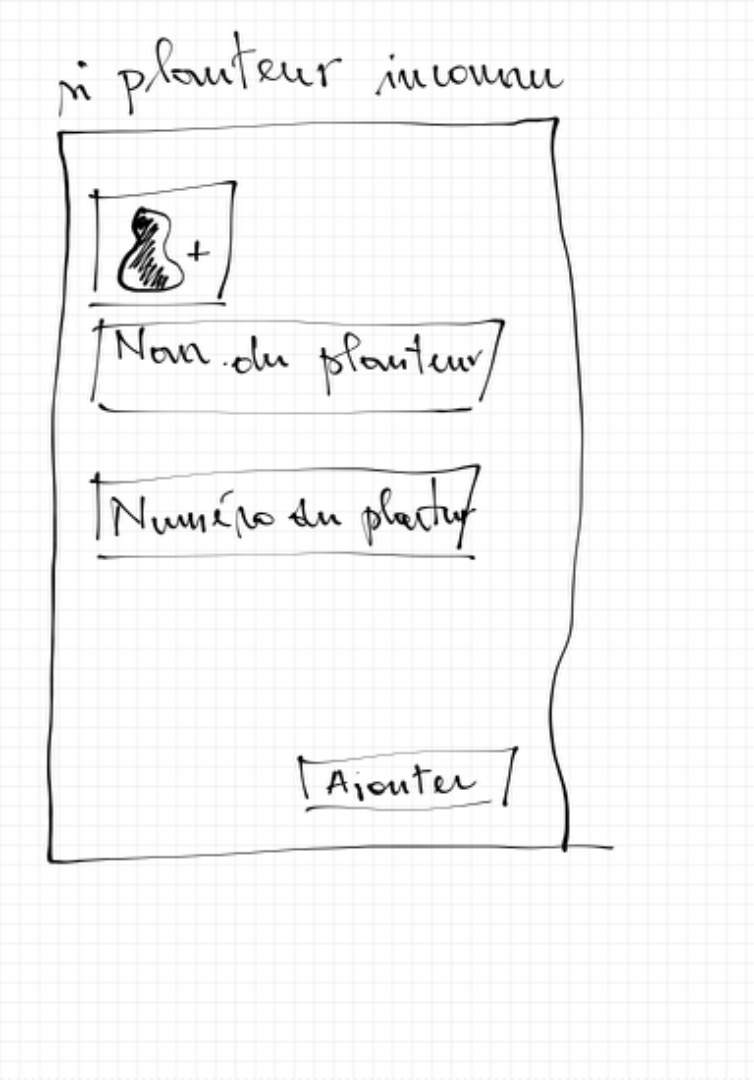 si planteur inconnu
+
Nom du planteur
Numéro du
Ajouter